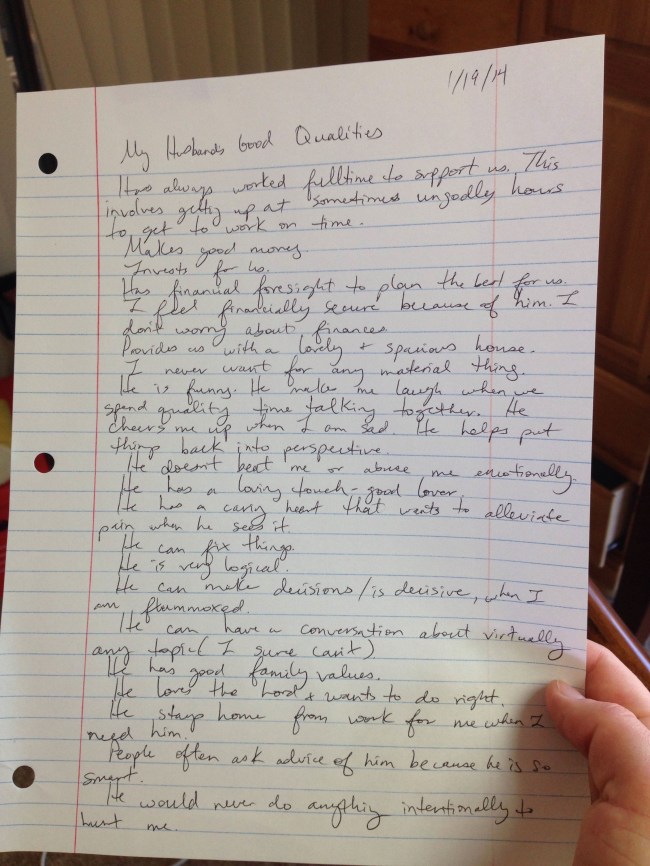 1/19/14
My Husbands Good Qualities
Has always worked fulltime to support us. This
involves getting up at sometimes ungodly hours
to get to work on time.
Makes good money.
Invests for us.
Has financial foresight to plan the best for us.
I feel financially secure because of him. I
don't worry about finances
Provides us with a lovely + spacious house.
I never want for any material thing.
He is funny. He make me laugh when we
spend quality time talking together. He
cheers me up when I am sad. He helps put
things back into perspective.
He doesn't beat me or abuse me emotionally.
He has a loving touch - good lover.
He has a caring heart that wants to alleviate
pain when he sees it.
He can fix things.
He is very logical.
He can make decisions/is decisive, when I
am flummoxed.
He can have a conversation about virtually
any topic (I sure can't)
He has good family values.
He loves the Lord + wants to do right.
He stays home from work for me when I
need him.
People often ask advice of him because he is so
smart.
He would never do anything intentionally to
hurt me.